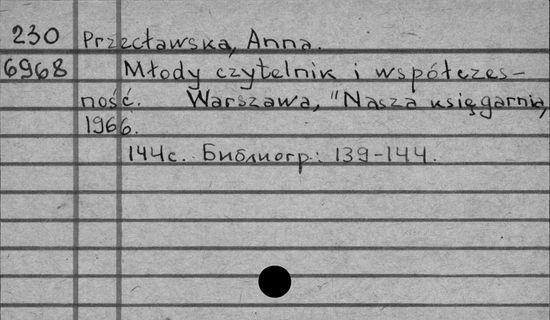 230 Przecławska, Anna.
6968 Młody czytelnik i współczes-
ność. Warszawa, "Nasza księgarnia,
1966.
144с. Библиогр.: 139-144.